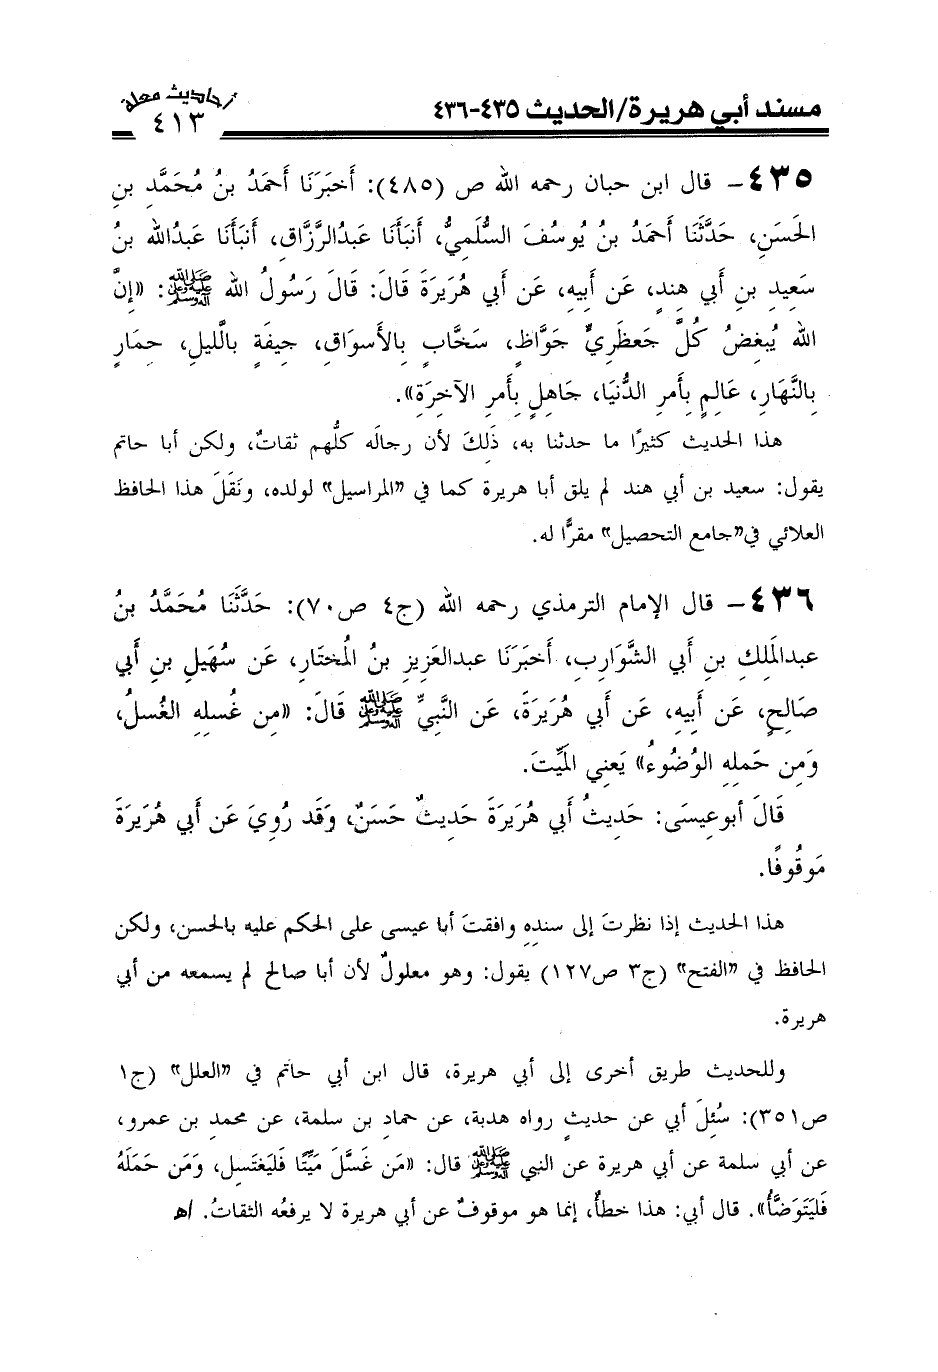 مسند أبي هريرة/الحديث ٤٣٥-٤٣٦
أحاديث معلة
٤١٣
٤٣٥- قال ابن حبان رحمه الله ص (٤٨٥): أَخبَرَنَا أَحمَدُ بنُ مُحَمَّدِ بنِ
الحَسَنِ، حَدَّثَنَا أَحمَدُ بنُ يُوسُفَ السُّلَمِيُّ، أَنبَأَنَا عَبدُالرَّزَّاقِ، أَنبَأَنَا عَبدُالله بنُ
سَعِيدِ بنِ أَبي هِندٍ، عَن أَبِيهِ، عَن أَبي هُرَيرَةَ قَالَ: قَالَ رَسُولُ الله ﷺ: «إِنَّ
الله يُبغِضُ كُلَّ جَعظَرِيٍّ جَوَّاظٍ، سَخَّابٍ بِالأَسوَاقِ، جِيفَةٍ بِاللَّيلِ، حِمَارٍ
بِالنَّهَارِ، عَالِمٍ بِأَمرِ الدُّنيَا، جَاهِلٍ بِأَمرِ الآخِرَةِ».
هذا الحديث كثيرًا ما حدثنا به، ذَلِكَ لأن رجالَه كلَّهم ثقاتٌ، ولكن أبا حاتم
يقول: سعيد بن أبي هند لم يلق أبا هريرة كما في "المراسيل" لولده، ونَقَلَ هذا الحافظ
العلائي في"جامع التحصيل" مقرًّا له.
٤٣٦- قال الإمام الترمذي رحمه الله (ج٤ ص٧٠): حَدَّثَنَا مُحَمَّدُ بنُ
عبدالمَلِكِ بنِ أَبي الشَّوَارِبِ، أَخبَرَنَا عبدالعَزِيزِ بنُ المُختَارِ، عَن سُهَيلِ بنِ أَبي
صَالِحٍ، عَن أَبِيهِ، عَن أَبي هُرَيرَةَ، عَن النَّبيِّ ﷺ قَالَ: «مِن غُسلِهِ الغُسلُ،
وَمِن حَملِهِ الوُضُوءُ» يَعنِي المَيِّتَ.
قَالَ أبوعيسَى: حَدِيثُ أَبي هُرَيرَةَ حَدِيثٌ حَسَنٌ، وَقَد رُوِيَ عَن أَبي هُرَيرَةَ
مَوقُوفًا.
هذا الحديث إذا نظرتَ إلى سندِهِ وافقتَ أبا عيسى على الحكم عليه بالحسن، ولكن
الحافظ في "الفتح" (ج٣ ص١٢٧) يقول: وهو معلولٌ لأن أبا صالح لم يسمعه من أبي
هريرة.
وللحديث طريق أخرى إلى أبي هريرة، قال ابن أبي حاتم في "العلل" (ج١
ص٣٥١): سُئِلَ أبي عن حديثٍ رواه هدبة، عن حمادِ بن سلمة، عن محمد بن عمرو،
عن أبي سلمة عن أبي هريرة عن النبي ﷺ قال: «مَن غَسَّلَ مَيِّتًا فَليَغتَسِل، وَمَن حَمَلَهُ
فَليَتَوَضَّأُ». قال أبي: هذا خطأٌ، إنما هو موقوفٌ عن أبي هريرة لا يرفعُه الثقاتُ. اهـ